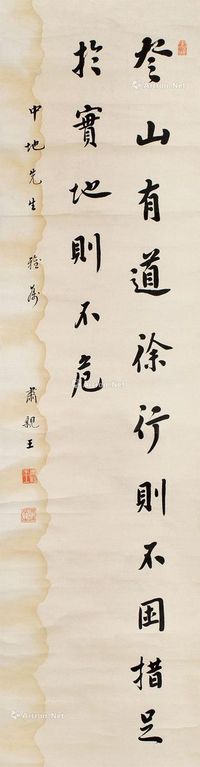 登山有道徐行則不困措足
於實地則不危
中地先生
肅親王